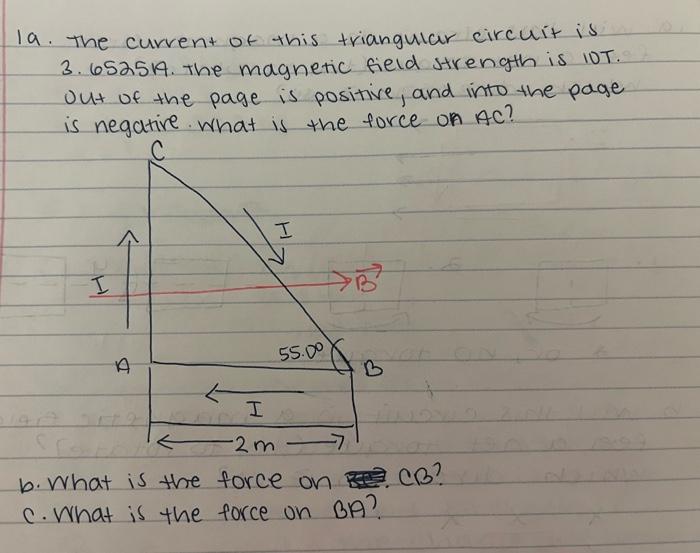 1a. The current of this triangular circuit is
3.65251A. The magnetic field strength is 10T.
Out of the page is positive, and into the page
is negative. What is the force on AC?
C
I
I
B
55.0°
A
B
I
2m
b. What is the force on CB?
c. What is the force on BA?